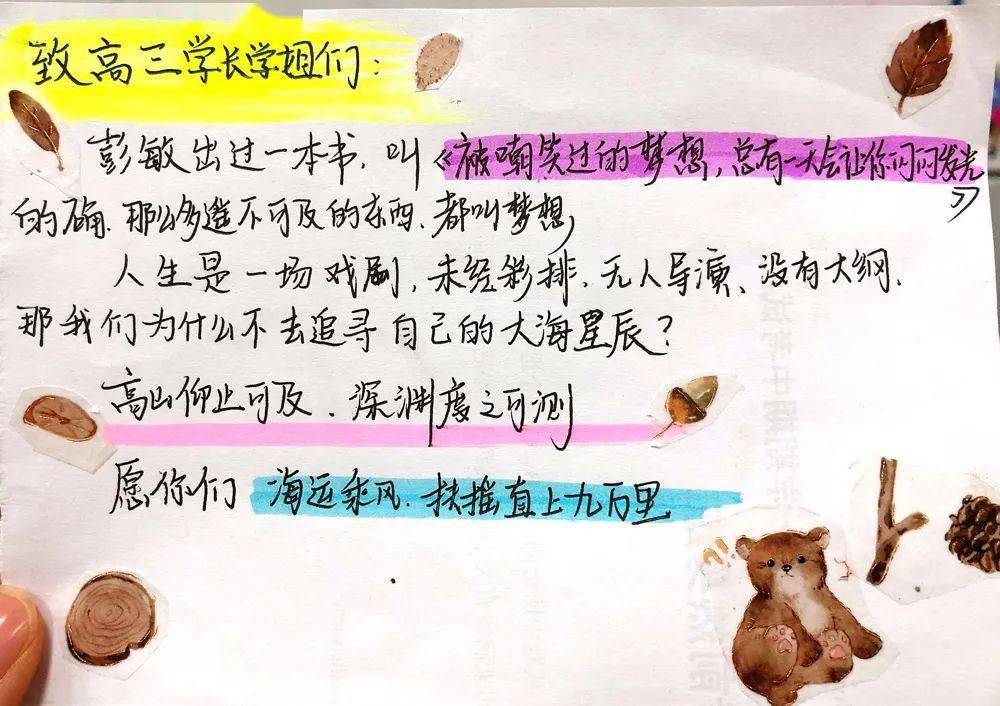 致高三学长学姐们:
彭敏出过一本书,叫《被嘲笑过的梦想,总有一天会让你闪闪发光》
的确.那么多遥不可及的东西.都叫梦想,
人生是一场戏剧,未经彩排.无人导演、没有大纲.
那我们为什么不去追寻自己的大海星辰?
高山仰止可及.深渊度之可测
愿你们 海运乘风.扶摇直上九万里